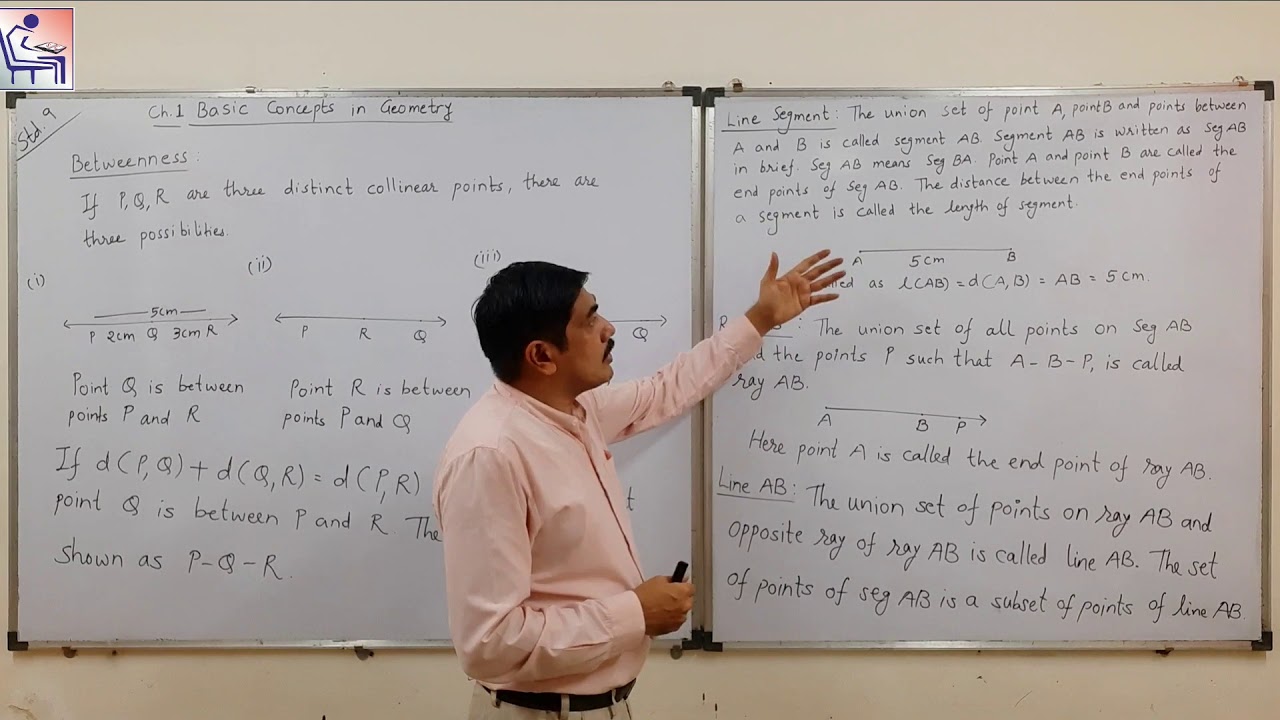 Std. 9
Ch.1 Basic Concepts in Geometry
Betweenness:
If P, Q, R are three distinct collinear points, there are
three possibilities.
(i) (ii) (iii)
5cm
P 2cm Q 3cm R
P R Q
Q
Point Q is between
points P and R
Point R is between
points P and Q
If d(P,Q) + d(Q,R) = d(P,R)
point Q is between P and R. The
shown as P-Q-R.
Line Segment: The union set of point A, point B and points between
A and B is called segment AB. Segment AB is written as Seg AB
in brief. Seg AB means Seg BA. Point A and point B are called the
end points of Seg AB. The distance between the end points of
a segment is called the length of segment.
A 5cm B
as l(AB) = d(A,B) = AB = 5cm.
: The union set of all points on Seg AB
the points P such that A-B-P, is called
ray AB.
A B P
Here point A is called the end point of ray AB.
Line AB: The union set of points on ray AB and
opposite ray of ray AB is called line AB. The set
of points of seg AB is a subset of points of line AB.